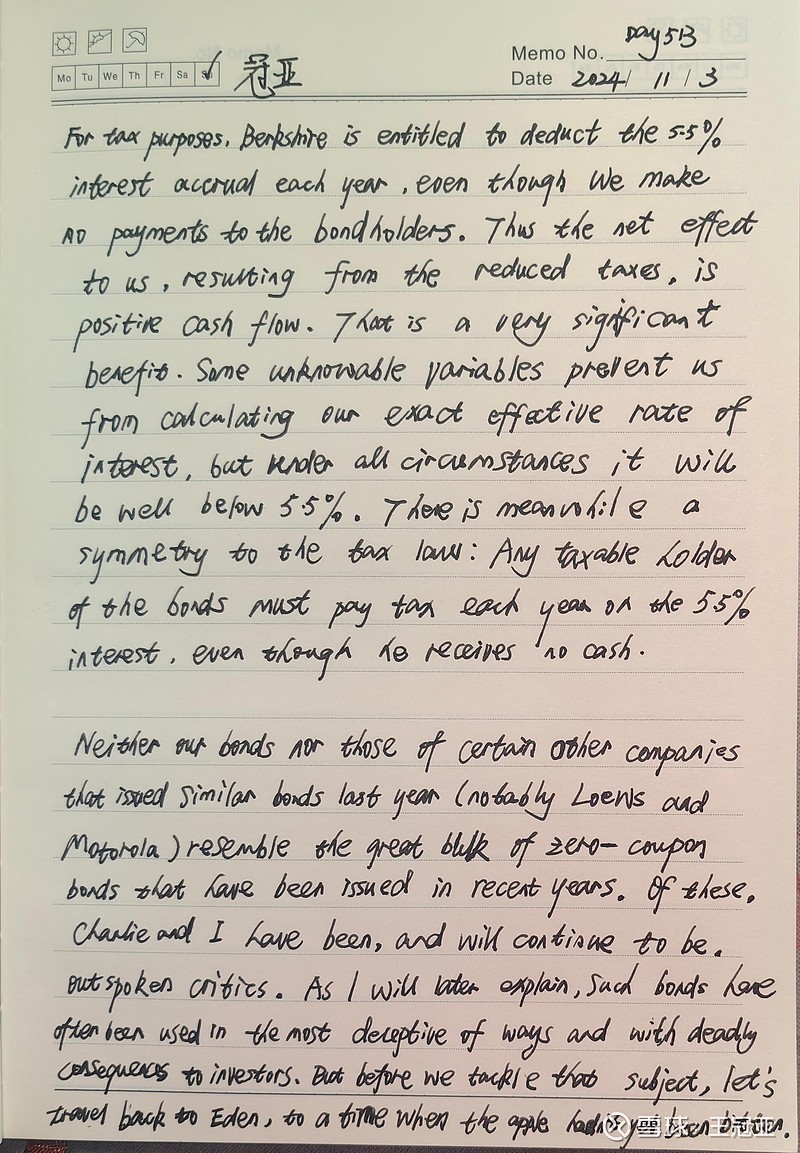 Memo No. Day513
Mo Tu We Th Fr Sa 冠亚
Date 2024/ 11 / 3
For tax purposes, Berkshire is entitled to deduct the 5.5%
interest accrual each year, even though we make
no payments to the bondholders. Thus the net effect
to us, resulting from the reduced taxes, is
positive cash flow. That is a very significant
benefit. Some unknowable variables prevent us
from calculating our exact effective rate of
interest, but under all circumstances it will
be well below 5.5%. There is meanwhile a
symmetry to the tax law: Any taxable holder
of the bonds must pay tax each year on the 5.5%
interest, even though he receives no cash.
Neither our bonds nor those of certain other companies
that issued similar bonds last year (notably Loews and
Motorola) resemble the great bulk of zero-coupon
bonds that have been issued in recent years. Of these,
Charlie and I have been, and will continue to be,
outspoken critics. As I will later explain, such bonds have
often been used in the most deceptive of ways and with deadly
consequences to investors. But before we tackle that subject, let's
travel back to Eden, to a time when the apple been bitten.
雪球：王冠亚